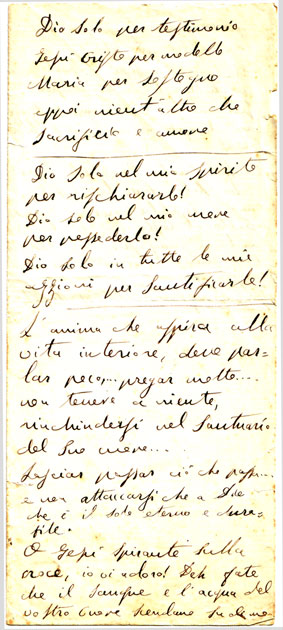 Dio Solo per testimonio
Gesù Cristo per modello
Maria per Sostegno
eppoi nient'altro che
Sacrificio e amore
Dio Solo nel mio spirito
per rischiararlo!
Dio solo nel mio cuore
per possederlo!
Dio Solo in tutte le mie
azzioni per Santificarle!
L'anima che aspira alla
vita interiore, deve par=
lar poco... pregar molto....
non tenere a niente,
rinchiudersi nel Santuario
del Suo cuore....
Lasciar passar ciò che passa...
e non attaccarsi che a Dio
che è il solo eterno e dura=
bile.
O Gesù spirante sulla
croce, io vi adoro! Deh fate
che il Sangue e l'acqua del
vostro Cuore scendano